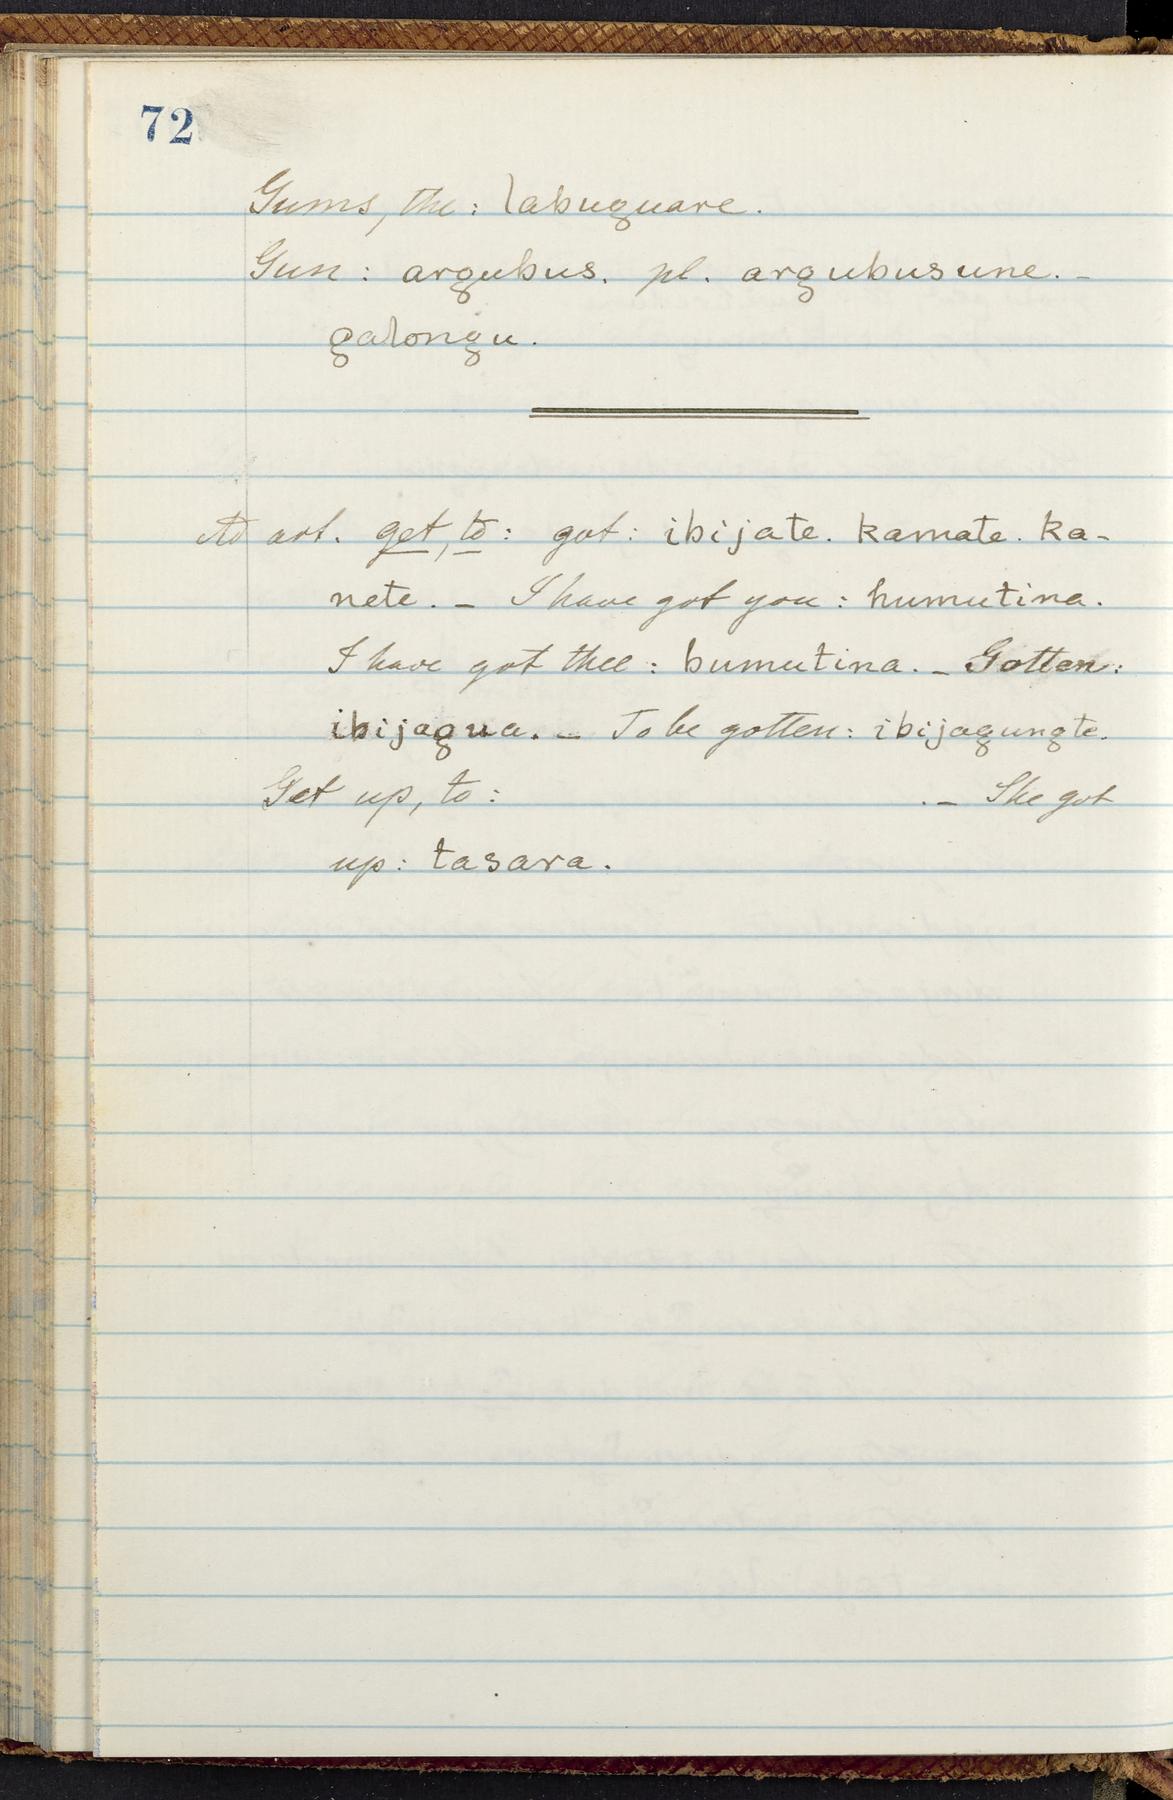 72
Gums, the: labuguare.
Gun: argubus. pl. argubusune. –
galongu.
Ad art. get, to: got: ibijate. kamate. ka-
nete. – I have got you: humutina.
I have got thee: bumutina. – Gotten:
ibijagua. – To be gotten: ibijagungte.
Get up, to: . – She got
up: tasara.